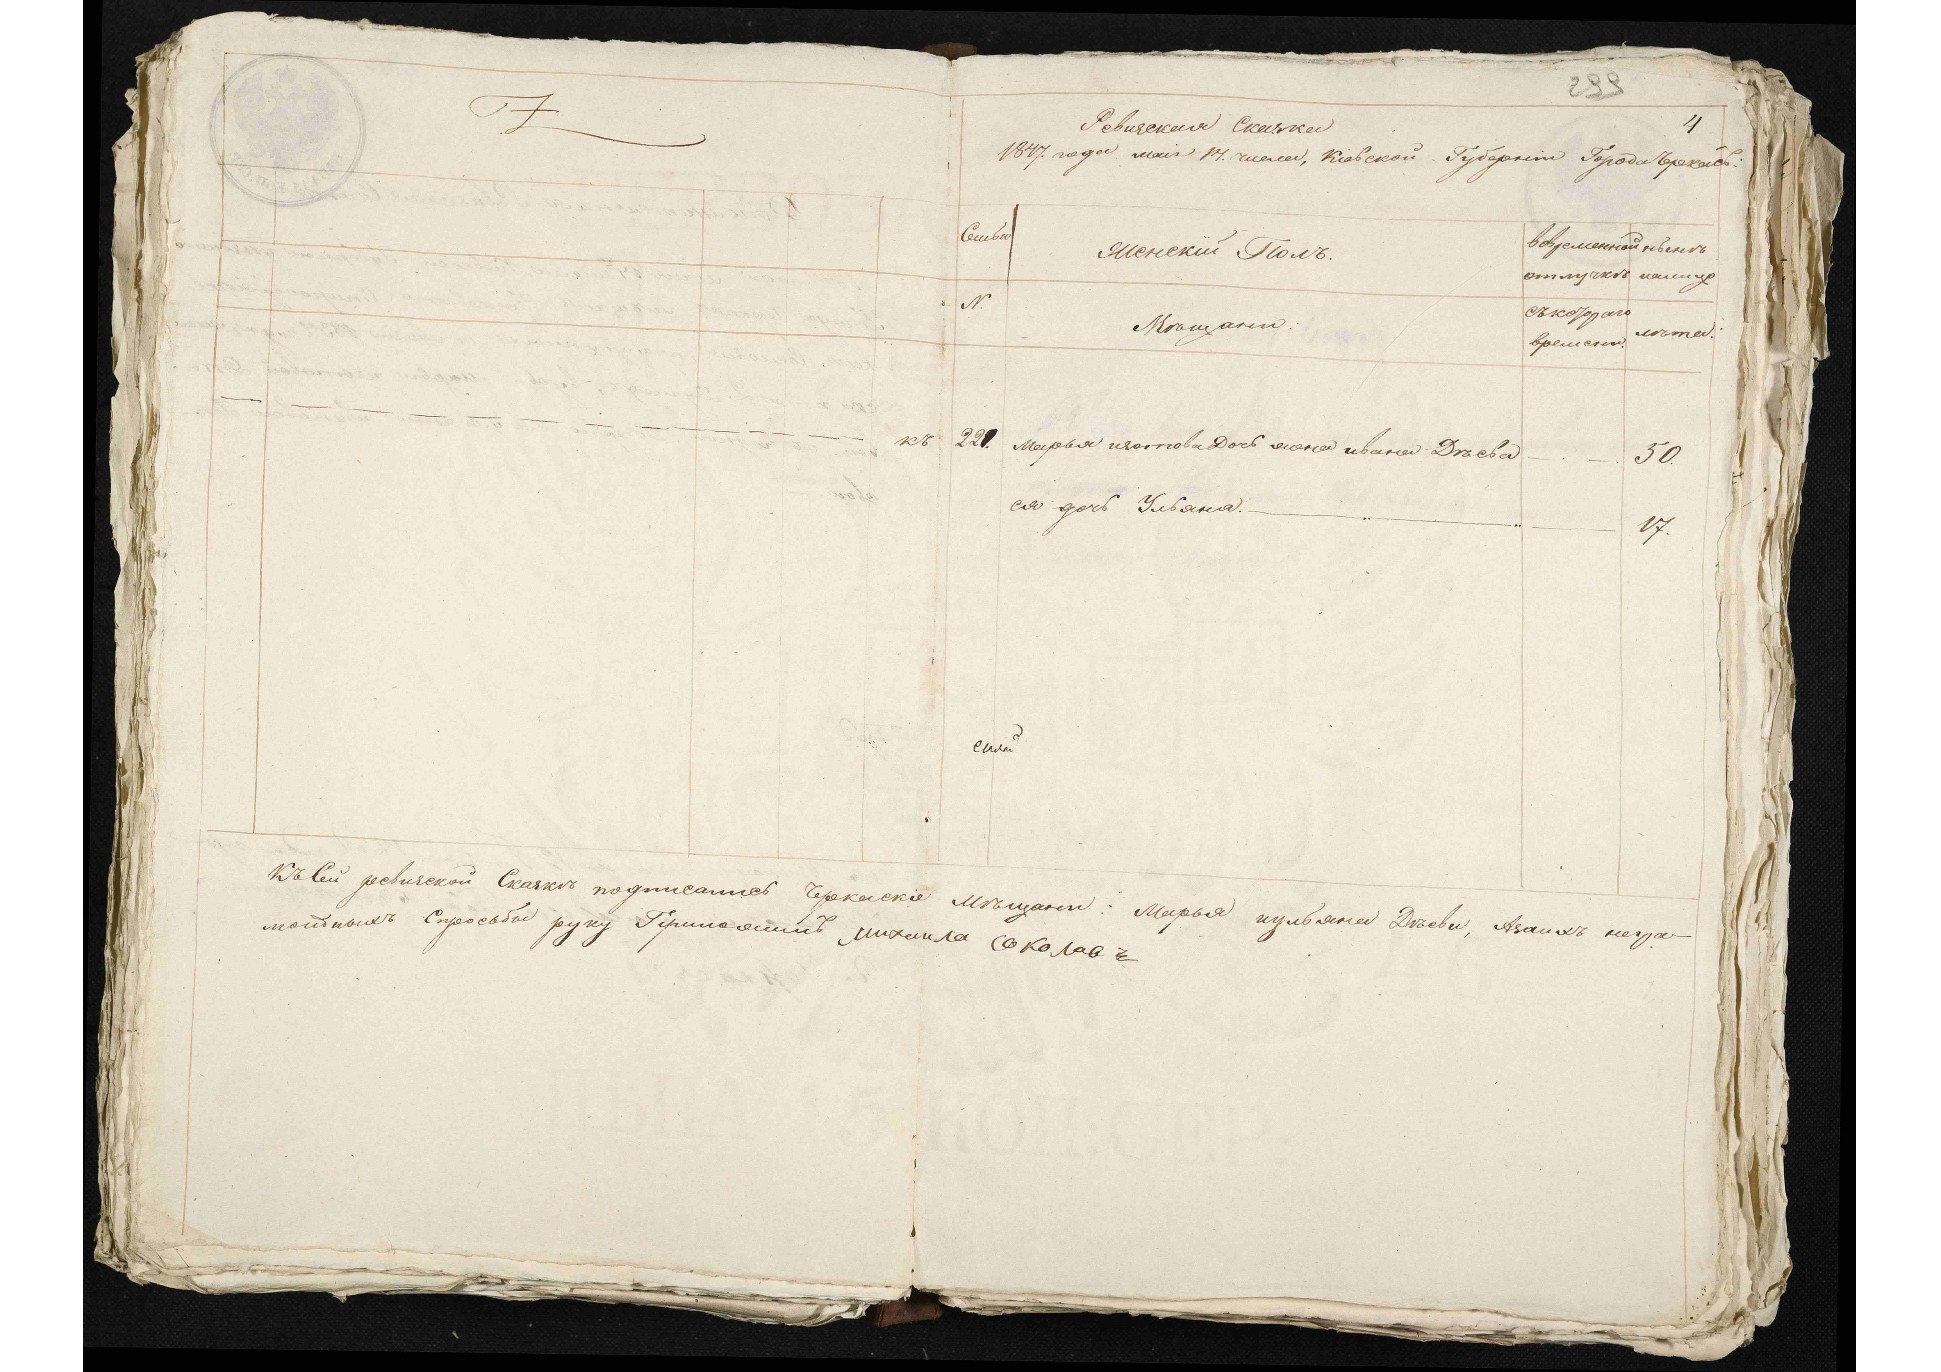 299
4
Ревизская Сказка
1847. года маія 17. числа, Кіевской Губерніи Города Черкасъ:
Семьи
Женскій Полъ.
вовременной
отлучкѣ
нынѣ
налицо
N.
Мѣщани:
съкотораго
времени:
лѣта:
къ 221. Марья изотова Дочь жена ивана Дѣева 50.
ея дочь Ульяна. 17.
Къ Сей ревизской Сказкѣ подписались Черкаскіе Мѣщани: Марья иульяна Дѣеви, Азаихъ негра-
мотныхъ Спросьбы руку Приложилъ михаила соколовъ